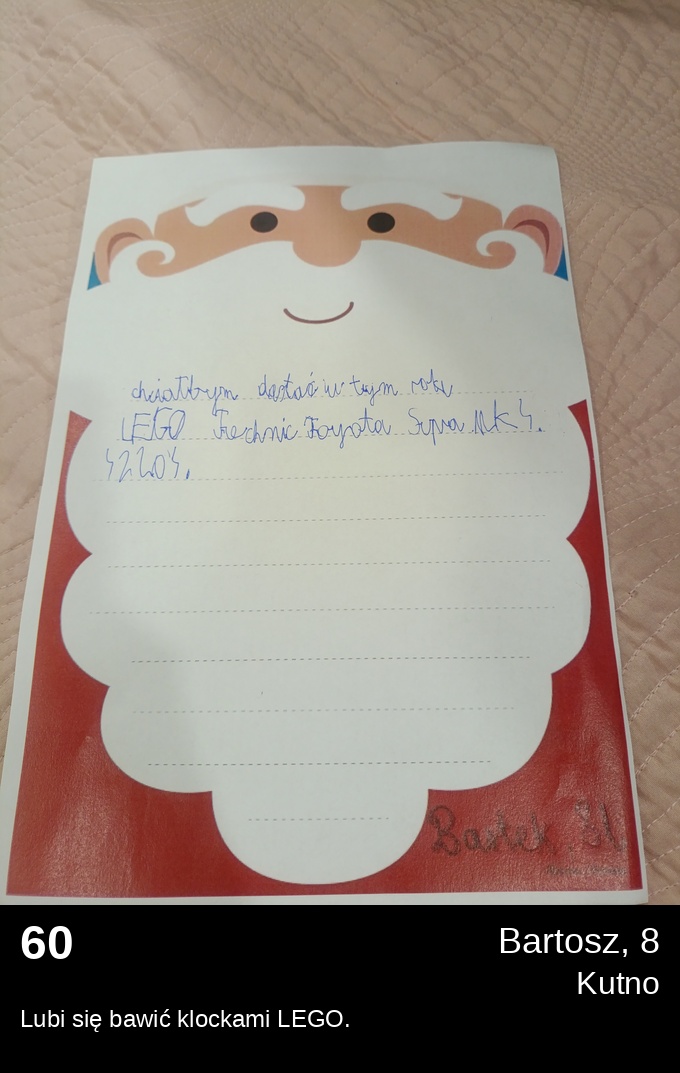 chciałbym dostać w tym roku
LEGO Technic Toyota Supra MK4.
42204.
Bartek
60
Bartosz, 8
Kutno
Lubi się bawić klockami LEGO.